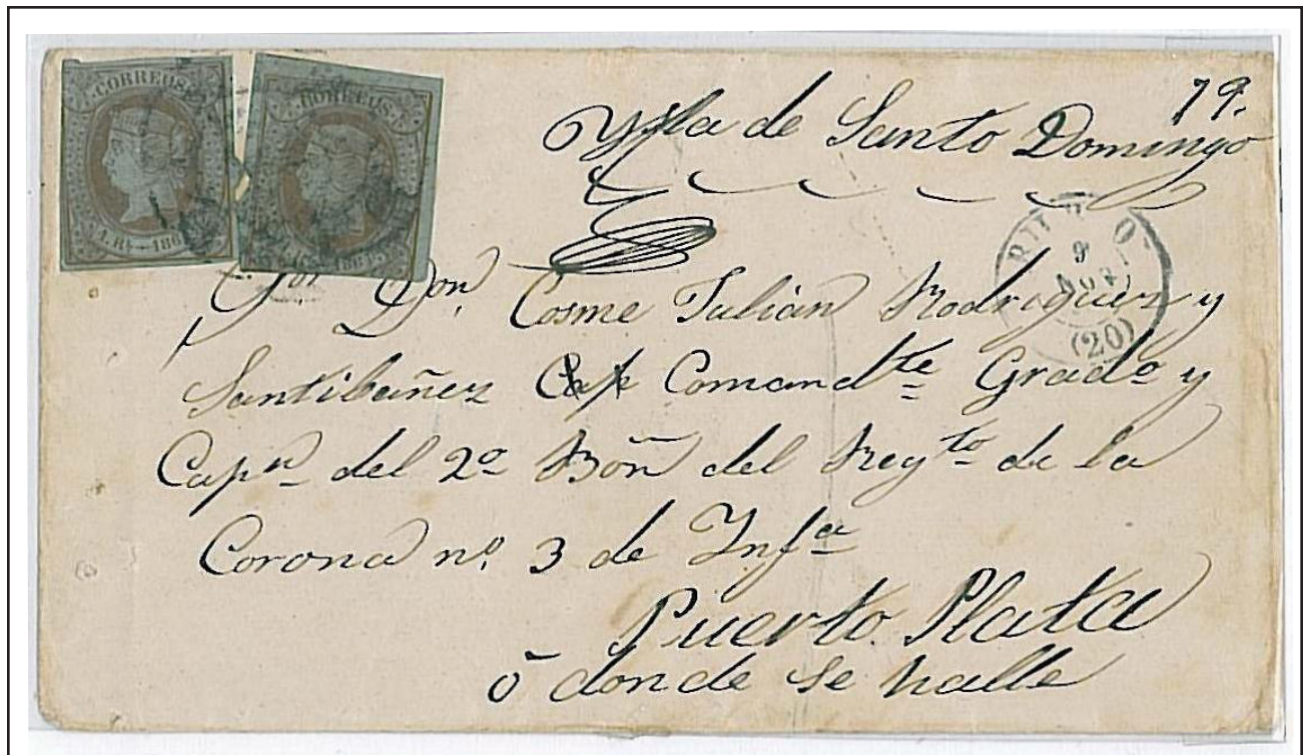 CORREOS
CORREOS
79.
Ysla de Santo Domingo
9
(20)
Sor Don Cosme Julián Rodriguez y
Santibañez Cap Comandte Grado y
Capn del 2º Bón del Regto de la
Corona nº 3 de Infa
Puerto Plata
ó donde se halle